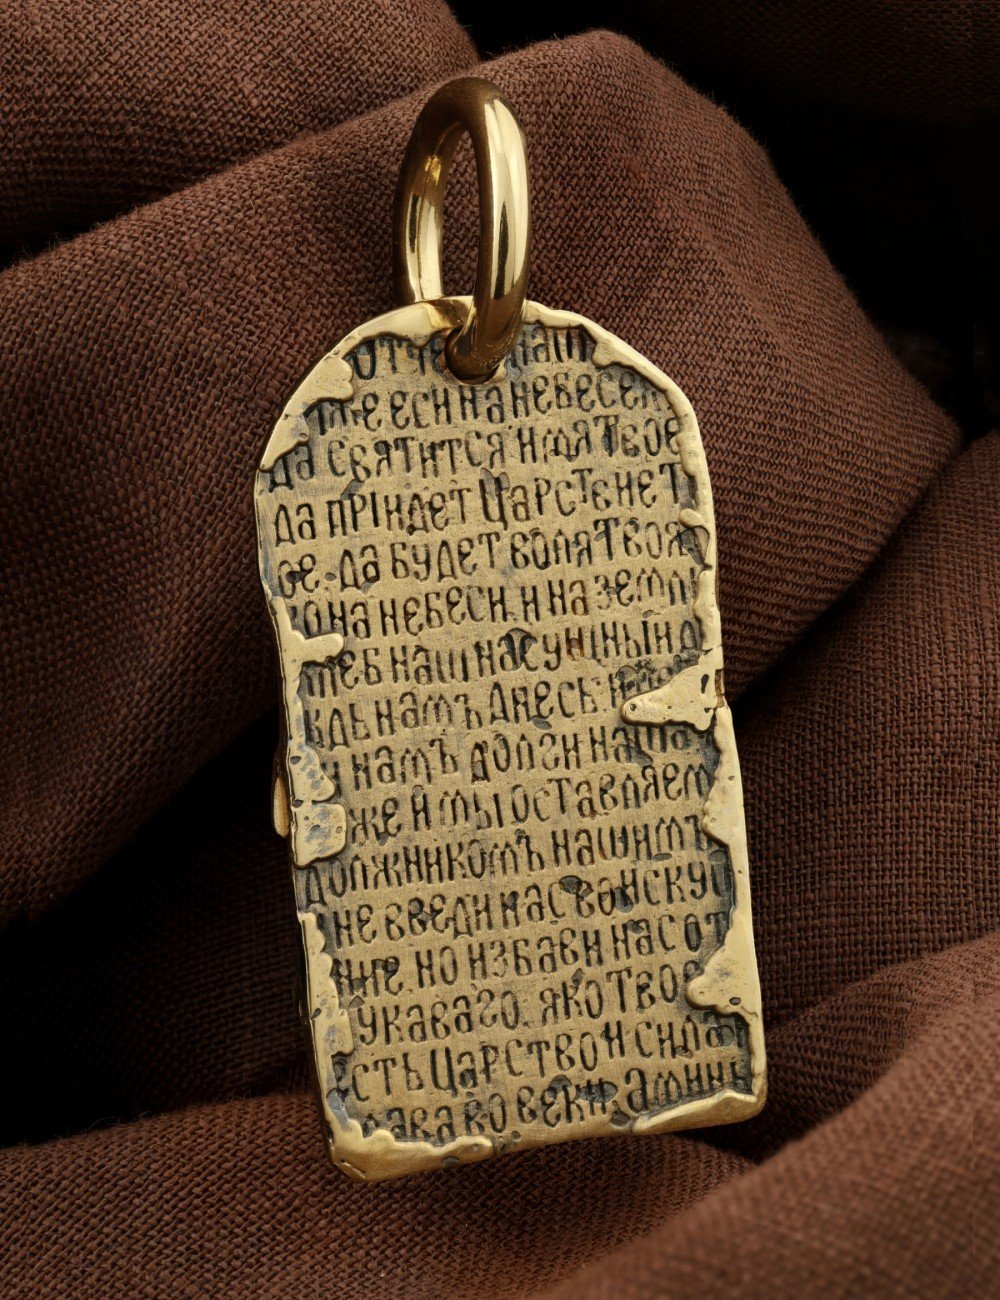 ОТЧЕ НАШ
ЖЕ ЕСИ НА НЕБЕСЕХ
ДА СВЯТИТСЯ ИМЯ ТВОЕ
ДА ПРIИДЕТ ЦАРСТЕНЕ Т
ОЕ. ДА БУДЕТ ВОЛЯ ТВОЯ
КО НА НЕБЕСИ. И НА ЗЕМЛИ
ЛЕБ НАШ НАСУЩНЫЙ Д
ЖДЬ НАМЪ ДНЕСЬ. И
И НАМЪ ДОЛГИ НАША
ЖЕ И МЫ ОСТАВЛЯЕМ
ДОЛЖНИКОМЪ НАШИМЪ
НЕ ВВЕДИ НАС ВО ИСКУ
НИЕ. НО ИЗБАВИ НАС ОТ
УКАВАГО. ЯКО ТВОЕ
ЕСТЬ ЦАРСТВО И СИЛА
ЛАВА ВО ВЕКИ. АМИНЬ